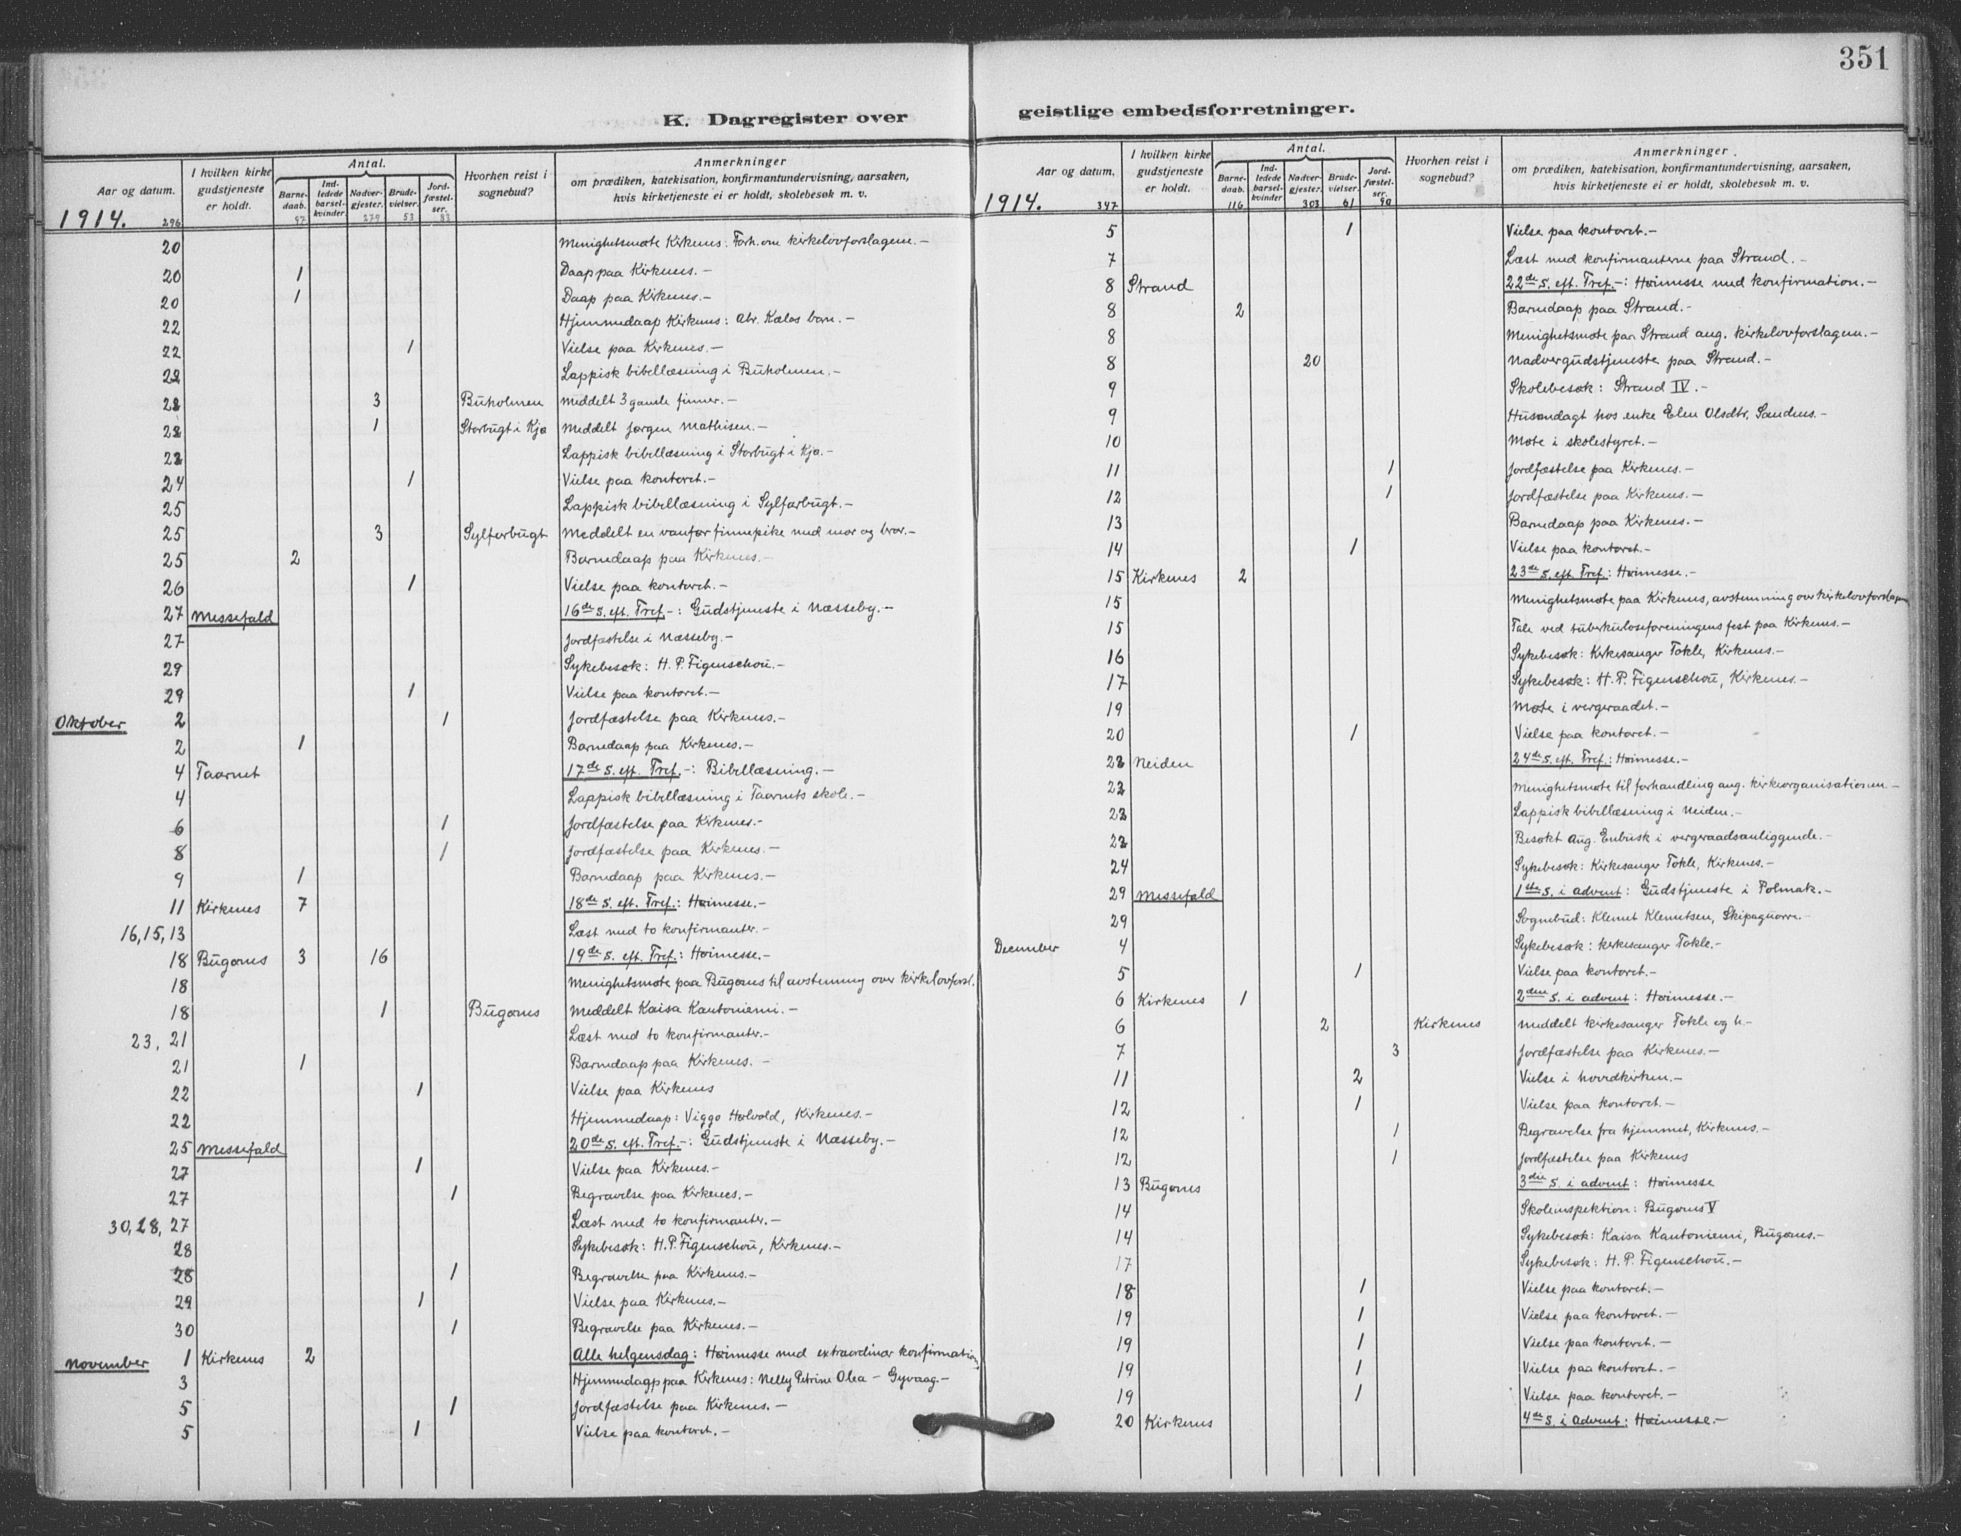 351
K. Dagregister over geistlige embedsforretninger.
Aar og datum. I hvilken kirke gudstjeneste er holdt. Antal. Barnedaab. Indledede barselkvinder. Nadvergjester. Brudevielser. Jordfæstelser. Hvorhen reist i sognebud? Anmerkninger om prædiken, katekisation, konfirmantundervisning, aarsaken, hvis kirketjeneste ei er holdt, skolebesøk m. v.
1914. 296 97 279 53 83
20 Menighetsmøte Kirkenes: Forh. om kirkelovforslagene.-
20 1 Daap paa Kirkenes.-
20 1 Daap paa Kirkenes.-
22 Hjemmedaap Kirkenes: Abr. Kælas barn.-
22 1 Vielse paa Kirkenes.-
22 Lappisk bibellæsning i Buholmen.-
22 3 Buholmen Meddelt 3 gamle finner.-
22 1 Storbugt i Kjø Meddelt Jørgen Mathisen.-
22 Lappisk bibellæsning i Storbugt i Kjø.-
24 1 Vielse paa kontoret.-
25 Lappisk bibellæsning i Sylfarbugt.-
25 3 Sylfarbugt Meddelt en vanfør finnepike med mor og bror.-
25 2 Barnedaap paa Kirkenes.-
26 1 Vielse paa kontoret.-
27 Messefald 16de s. eft. Tref.-: Gudstjeneste i Næsseby.-
27 Jordfæstelse i Næsseby.-
29 Sykebesøk: H. P. Figenschou.-
29 1 Vielse paa kontoret.-
Oktober 2 1 Jordfæstelse paa Kirkenes.-
2 1 Barnedaap paa Kirkenes.-
4 Taarnet 17de s. eft. Tref.-: Bibellæsning.-
4 Lappisk bibellæsning i Taarnets skole.-
6 1 Jordfæstelse paa Kirkenes.-
8 1 Jordfæstelse paa Kirkenes.-
9 1 Barnedaap paa Kirkenes.-
11 Kirkenes 7 18de s. eft. Tref.: Høimesse.-
16, 15, 13 Læst med to konfirmanter.-
18 Bugønes 3 16 19de s. eft. Tref.: Høimesse.-
18 Menighetsmøte paa Bugønes til avstemning over kirkelovforsl.
18 1 Bugønes Meddelt Kaisa Kantoniemi.-
23, 21 Læst med to konfirmanter.-
21 1 Barnedaap paa Kirkenes.-
22 1 Vielse paa Kirkenes
22 Hjemmedaap: Viggo Halvold, Kirkenes.-
25 Messefald 20de s. eft. Tref.-: Gudstjeneste i Næsseby.-
27 1 Vielse paa Kirkenes.-
27 1 Begravelse paa Kirkenes.-
30, 28, 27 Læst med to konfirmanter.-
28 Sykebesøk: H. P. Figenschou, Kirkenes.-
28 1 Begravelse paa Kirkenes.-
29 1 Vielse paa Kirkenes.-
30 1 Begravelse paa Kirkenes.-
November 1 Kirkenes 2 Alle helgensdag: Høimesse med extraordinær konfirmation
3 Hjemmedaap paa Kirkenes: Nelly Petrine Olea - Gyvaag.-
5 1 Jordfæstelse paa Kirkenes.-
5 1 Vielse paa kontoret.-
Aar og datum. I hvilken kirke gudstjeneste er holdt. Antal. Barnedaab. Indledede barselkvinder. Nadvergjester. Brudevielser. Jordfæstelser. Hvorhen reist i sognebud? Anmerkninger om prædiken, katekisation, konfirmantundervisning, aarsaken, hvis kirketjeneste ei er holdt, skolebesøk m. v.
1914. 347 116 303 61 90
5 1 Vielse paa kontoret.-
7 Læst med konfirmanterne paa Strand.-
8 Strand 22de s. eft. Tref.-: Høimesse med konfirmation.-
8 2 Barnedaap paa Strand.-
8 Menighetsmøte paa Strand ang. kirkelovforslagene.-
8 20 Nadvergudstjeneste paa Strand.-
9 Skolebesøk: Strand IV.-
9 Husandagt hos enke Elen Olsdtr. Sandnes.-
10 Møte i skolestyret.-
11 1 Jordfæstelse paa Kirkenes.-
12 1 Jordfæstelse paa Kirkenes.-
13 Barnedaap paa Kirkenes.-
14 1 Vielse paa kontoret.-
15 Kirkenes 2 23de s. eft. Tref.: Høimesse.-
15 Menighetsmøte paa Kirkenes, avstemning over kirkelovforslagene
15 Tale ved tuberkuloseforeningens fest paa Kirkenes.-
16 Sykebesøk: Kirkesanger Tokle, Kirkenes.-
17 Sykebesøk: H. P. Figenschou, Kirkenes.-
19 Møte i vergeraadet.-
20 1 Vielse paa kontoret.-
22 Neiden 24de s. eft. Tref.: Høimesse.-
22 Menighetsmøte til forhandling ang. kirkeorganisationen.-
22 Lappisk bibellæsning i Neiden.-
22 Besøkt Aug. Enbusk i vergeraadsanliggende.-
24 Sykebesøk: Kirkesanger Tokle, Kirkenes.-
29 Messefald 1ste s. i advent: Gudstjeneste i Polmak.-
29 Sognebud: Klemet Klemetsen, Skipaguorra.-
December 4 Sykebesøk: kirkesanger Tokle.-
5 1 Vielse paa kontoret.-
6 Kirkenes 1 2den s. i advent: Høimesse.-
6 2 Kirkenes Meddelt kirkesanger Tokle og h.-
7 3 Jordfæstelse paa Kirkenes.-
11 2 Vielse i hovedkirken.-
12 1 Vielse paa kontoret.-
12 1 Begravelse fra hjemmet, Kirkenes.-
12 1 Jordfæstelse paa Kirkenes
13 Bugønes 3die s. i advent: Høimesse
14 Skoleinspektion: Bugønes V
14 Sykebesøk: Kaisa Kantoniemi, Bugønes.-
17 Sykebesøk: H. P. Figenschou.-
18 1 Vielse paa kontoret.-
19 1 Vielse paa kontoret.-
19 1 Vielse paa kontoret.-
19 1 Vielse paa kontoret.-
19 1 Vielse paa kontoret.-
20 Kirkenes 4de s. i advent: Høimesse.-